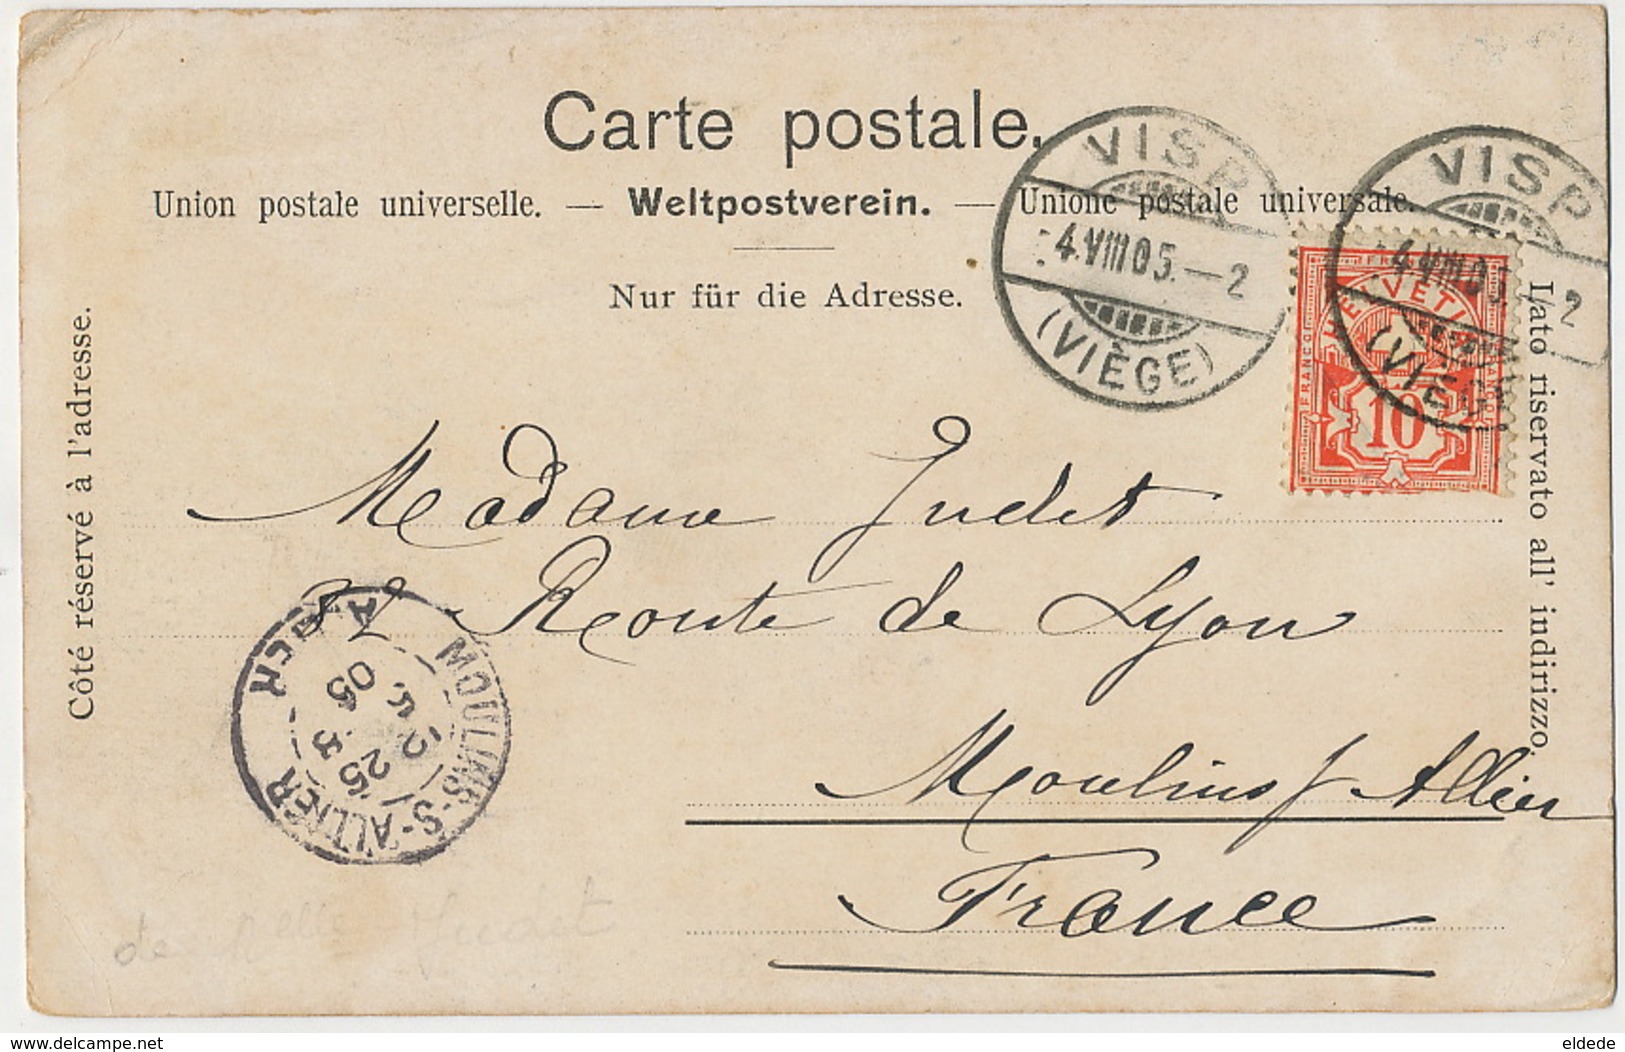 Carte postale.
Union postale universelle. — Weltpostverein. — Unione postale universale.
Nur für die Adresse.
Côté réservé à l'adresse.
Lato riservato all' indirizzo.
VISP
4.VIII 05.—2
(VIÈGE)
VISP
4.VIII 05.
2
(VIÈGE)
FRANCO
HELVETIA
FRANCO
10
Madame Judet
32 Route de Lyon
Moulins s/ Allier
France
MOULINS-S-ALLIER
ALLIER
25
05
de Melle Judet
www.delcampe.net
eldede